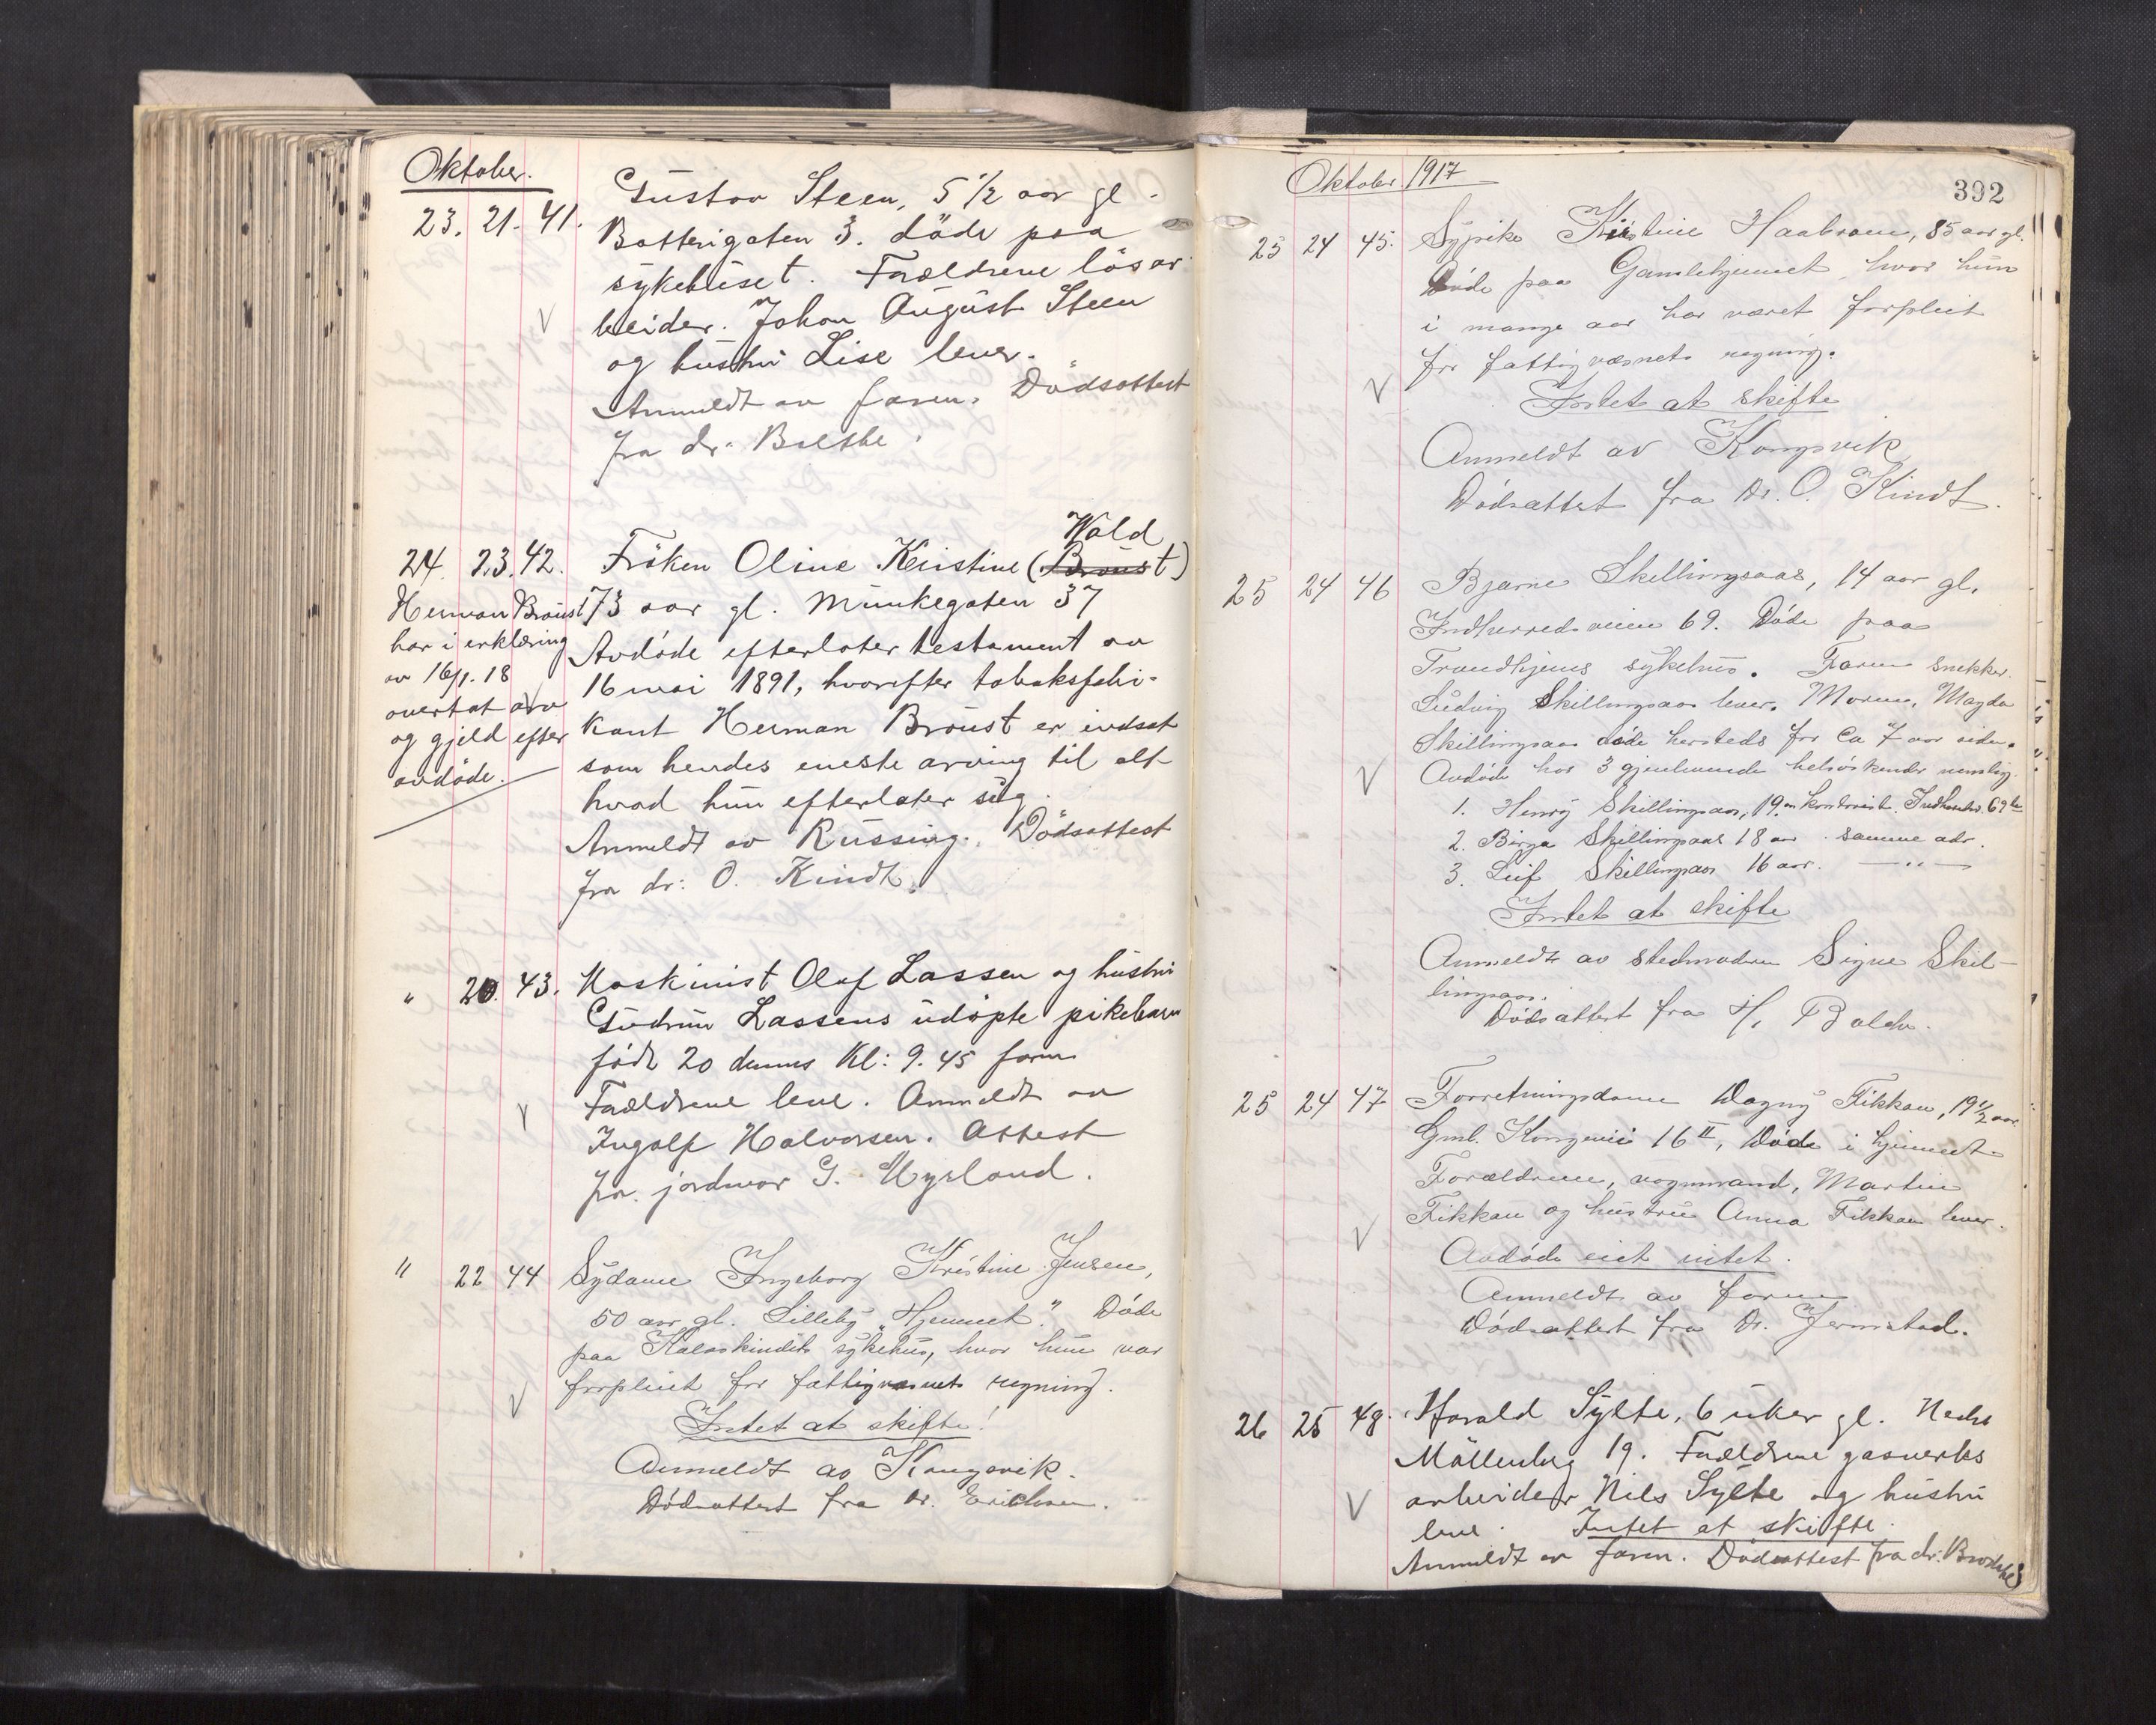 Oktober.
23. 21. 41. Gustav Steen, 5 1/2 aar gl.
Batterigaten 3. döde paa
sykehuset. Forældrene lösar
beider. Johan August Steen
og hustru Lise lever.
Anmeldt av faren. Dödsattest
fra dr.
Wold
24. 23. 42. Fröken Oline Kristine (Broust)
73 aar gl. Munkegaten 37
Avdöde efterlater testament av
16 mai 1891, hvorefter tobaksfabri-
kant Herman Broust er indsat
som hendes eneste arving til alt
hvad hun efterlater sig.
Anmeldt av Russing. Dödsattest
fra dr: O. Kindt.
Herman Broust
har i erklæring
av 16/1. 18
overtat arv
og gjeld efter
avdöde.
" 20. 43. Maskinist Olaf Lassen og hustru
Gudrun Lassens udöpte pikebarn
född 20 dennes Kl: 9.45 form.
Forældrene leve. Anmeldt av
Ingolf Halvorsen. Attest
fra jordmor G. Myrland.
" 22 44 Sydame Ingeborg Kristine Jensen,
50 aar gl. Lilleby "Hjemmet". Döde
paa Kalvskindet sykehus, hvor hun var
forpleiet for fattigvæsnets regning.
Intet at skifte!
Anmeldt av Kongsvik.
Dödsattest fra Dr. Erichsen.
Oktober 1917
392
25 24 45. Sypike Kristine Haabraen, 85 aar gl.
Döde paa Gamlehjemmet, hvor hun
i mange aar har været forpleiet
for fattigvæsnets regning.
Intet at skifte
Anmeldt av Kongsvik
Dödsattest fra Dr. O. Kindt.
25 24 46 Bjarne Skillingsaas, 14 aar gl.
Indherredsveien 69. Döde paa
Trondhjems sykehus. Faren snekker
Ludvig Skillingsaas lever. Moren, Magda
Skillingsaas döde hersteds for ca 7 aar siden.
Avdöde har 3 gjenlevende helsöskende nemlig
1. Henry Skillingsaas, 19 aar kontorist. Indherredsv. 69
2. Birga Skillingsaas 18 aar. samme adr.
3. Leif Skillingsaas 16 aar. — " —
Intet at skifte
Anmeldt av stedmoderen Signe Skil-
lingsaas.
Dödsattest fra H. Balch.
25 24 47 Forretningsdame Dagny Fikkan, 19 1/2 aar.
Gml. Kongevei 16 II, Döde i hjemmet.
Forældrene, vognmand, Martin
Fikkan og hustru Anna Fikkan lever.
Avdöde eiet intet.
Anmeldt av faren
Dödsattest fra Dr. Jermstad.
26 25 48. Harald Sylte, 6 uker gl. Nedre
Möllenberg 19. Forældrene gasverks
arbeider Nils Sylte og hustru
leve. Intet at skifte.
Anmeldt av faren. Dödsattest fra dr.